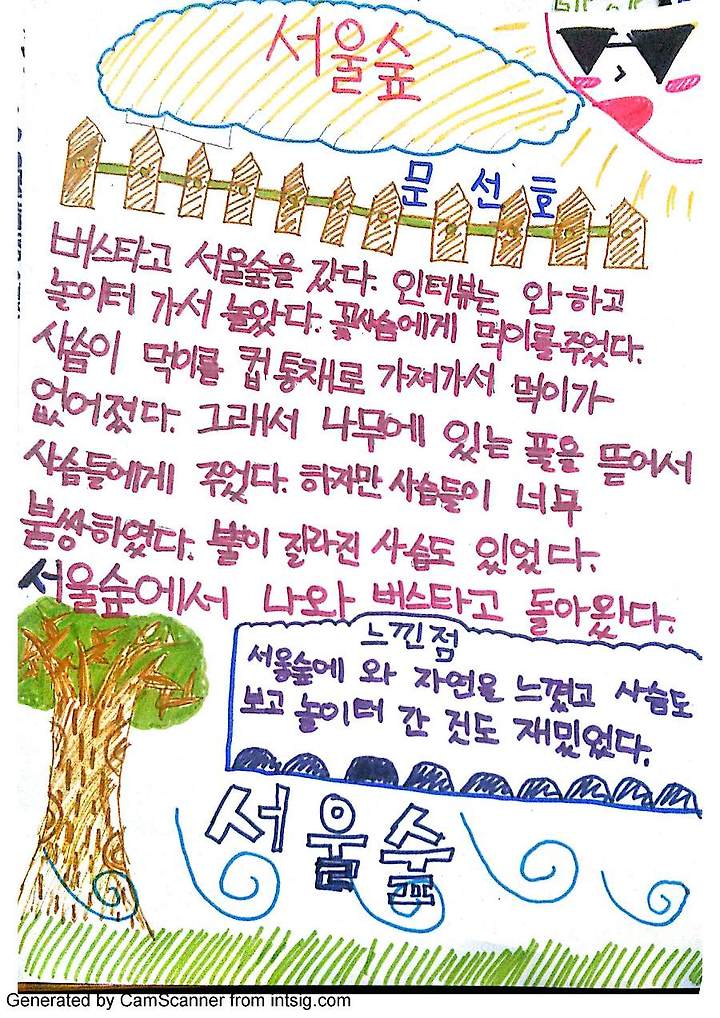 서울숲
문선호
버스타고 서울숲을 갔다. 인터뷰는 안하고
놀이터 가서 놀았다. 꽃사슴에게 먹이를주었다.
사슴이 먹이를 컵통채로 가져가서 먹이가
없어졌다. 그래서 나무에 있는 풀을 뜯어서
사슴들에게 주었다. 하지만 사슴들이 너무
불쌍하였다. 뿔이 잘라진 사슴도 있었다.
서울숲에서 나와 버스타고 돌아왔다.
느낀점
서울숲에 와 자연을 느꼈고 사슴도
보고 놀이터 간 것도 재밌었다.
서울숲
Generated by CamScanner from intsig.com